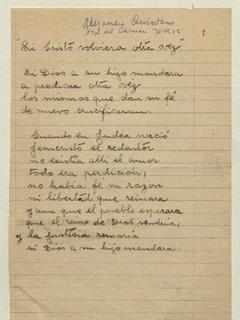 Alejandro Quintana
1
"Si Cristo volviera otra vez"
Si Dios a su hijo mandara
a predicar otra vez
los mismos que dan su fé
de nuevo crucificaran.
Cuando en Judea nació
Jesucristo el redentor
no existia alli el amor
todo era perdición,
no habia fé ni razon
ni libertad que reinara
y aun que el pueblo esperara
que el reino de Dios vendria,
y la justicia remaria
si Dios a su hijo mandara.